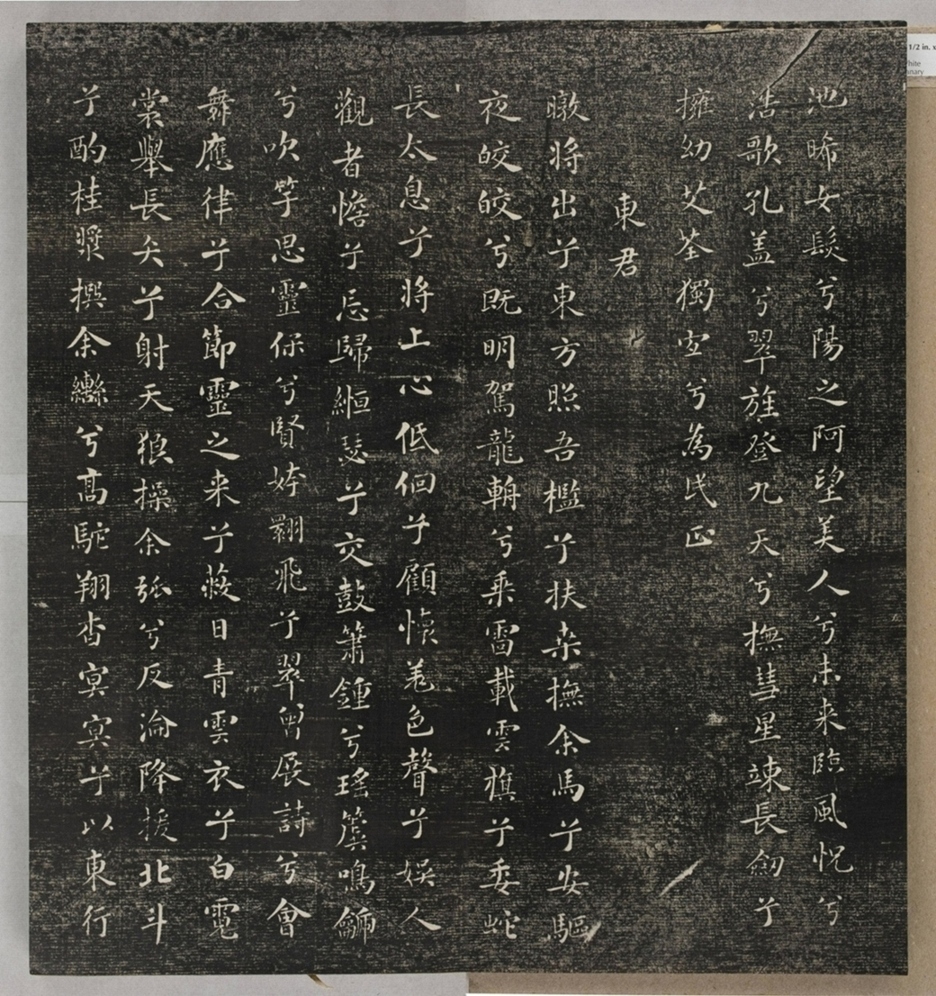 池晞女髮兮陽之阿望美人兮未来臨風怳兮
浩歌孔盖兮翠旌登九天兮撫彗星竦長劒兮
擁幼艾荃獨宜兮為民正
東君
暾將出兮東方照吾檻兮扶桒撫余馬兮安驅
夜皎皎兮既明駕龍輈兮乗雷載雲旗兮委蛇
長太息兮將上心低佪兮顧懷羌色聲兮娛人
觀者憺兮忘歸緪瑟兮交鼓簫鍾兮瑤簴鳴鷈
兮吹竽思靈保兮賢姱翾飛兮翠曾展詩兮會
舞應律兮合節靈之来兮蔽日青雲衣兮白霓
裳舉長矢兮射天狼操余弧兮反淪降援北斗
兮酌桂漿撰余轡兮高駝翔杳冥冥兮以東行
1/2 in. x